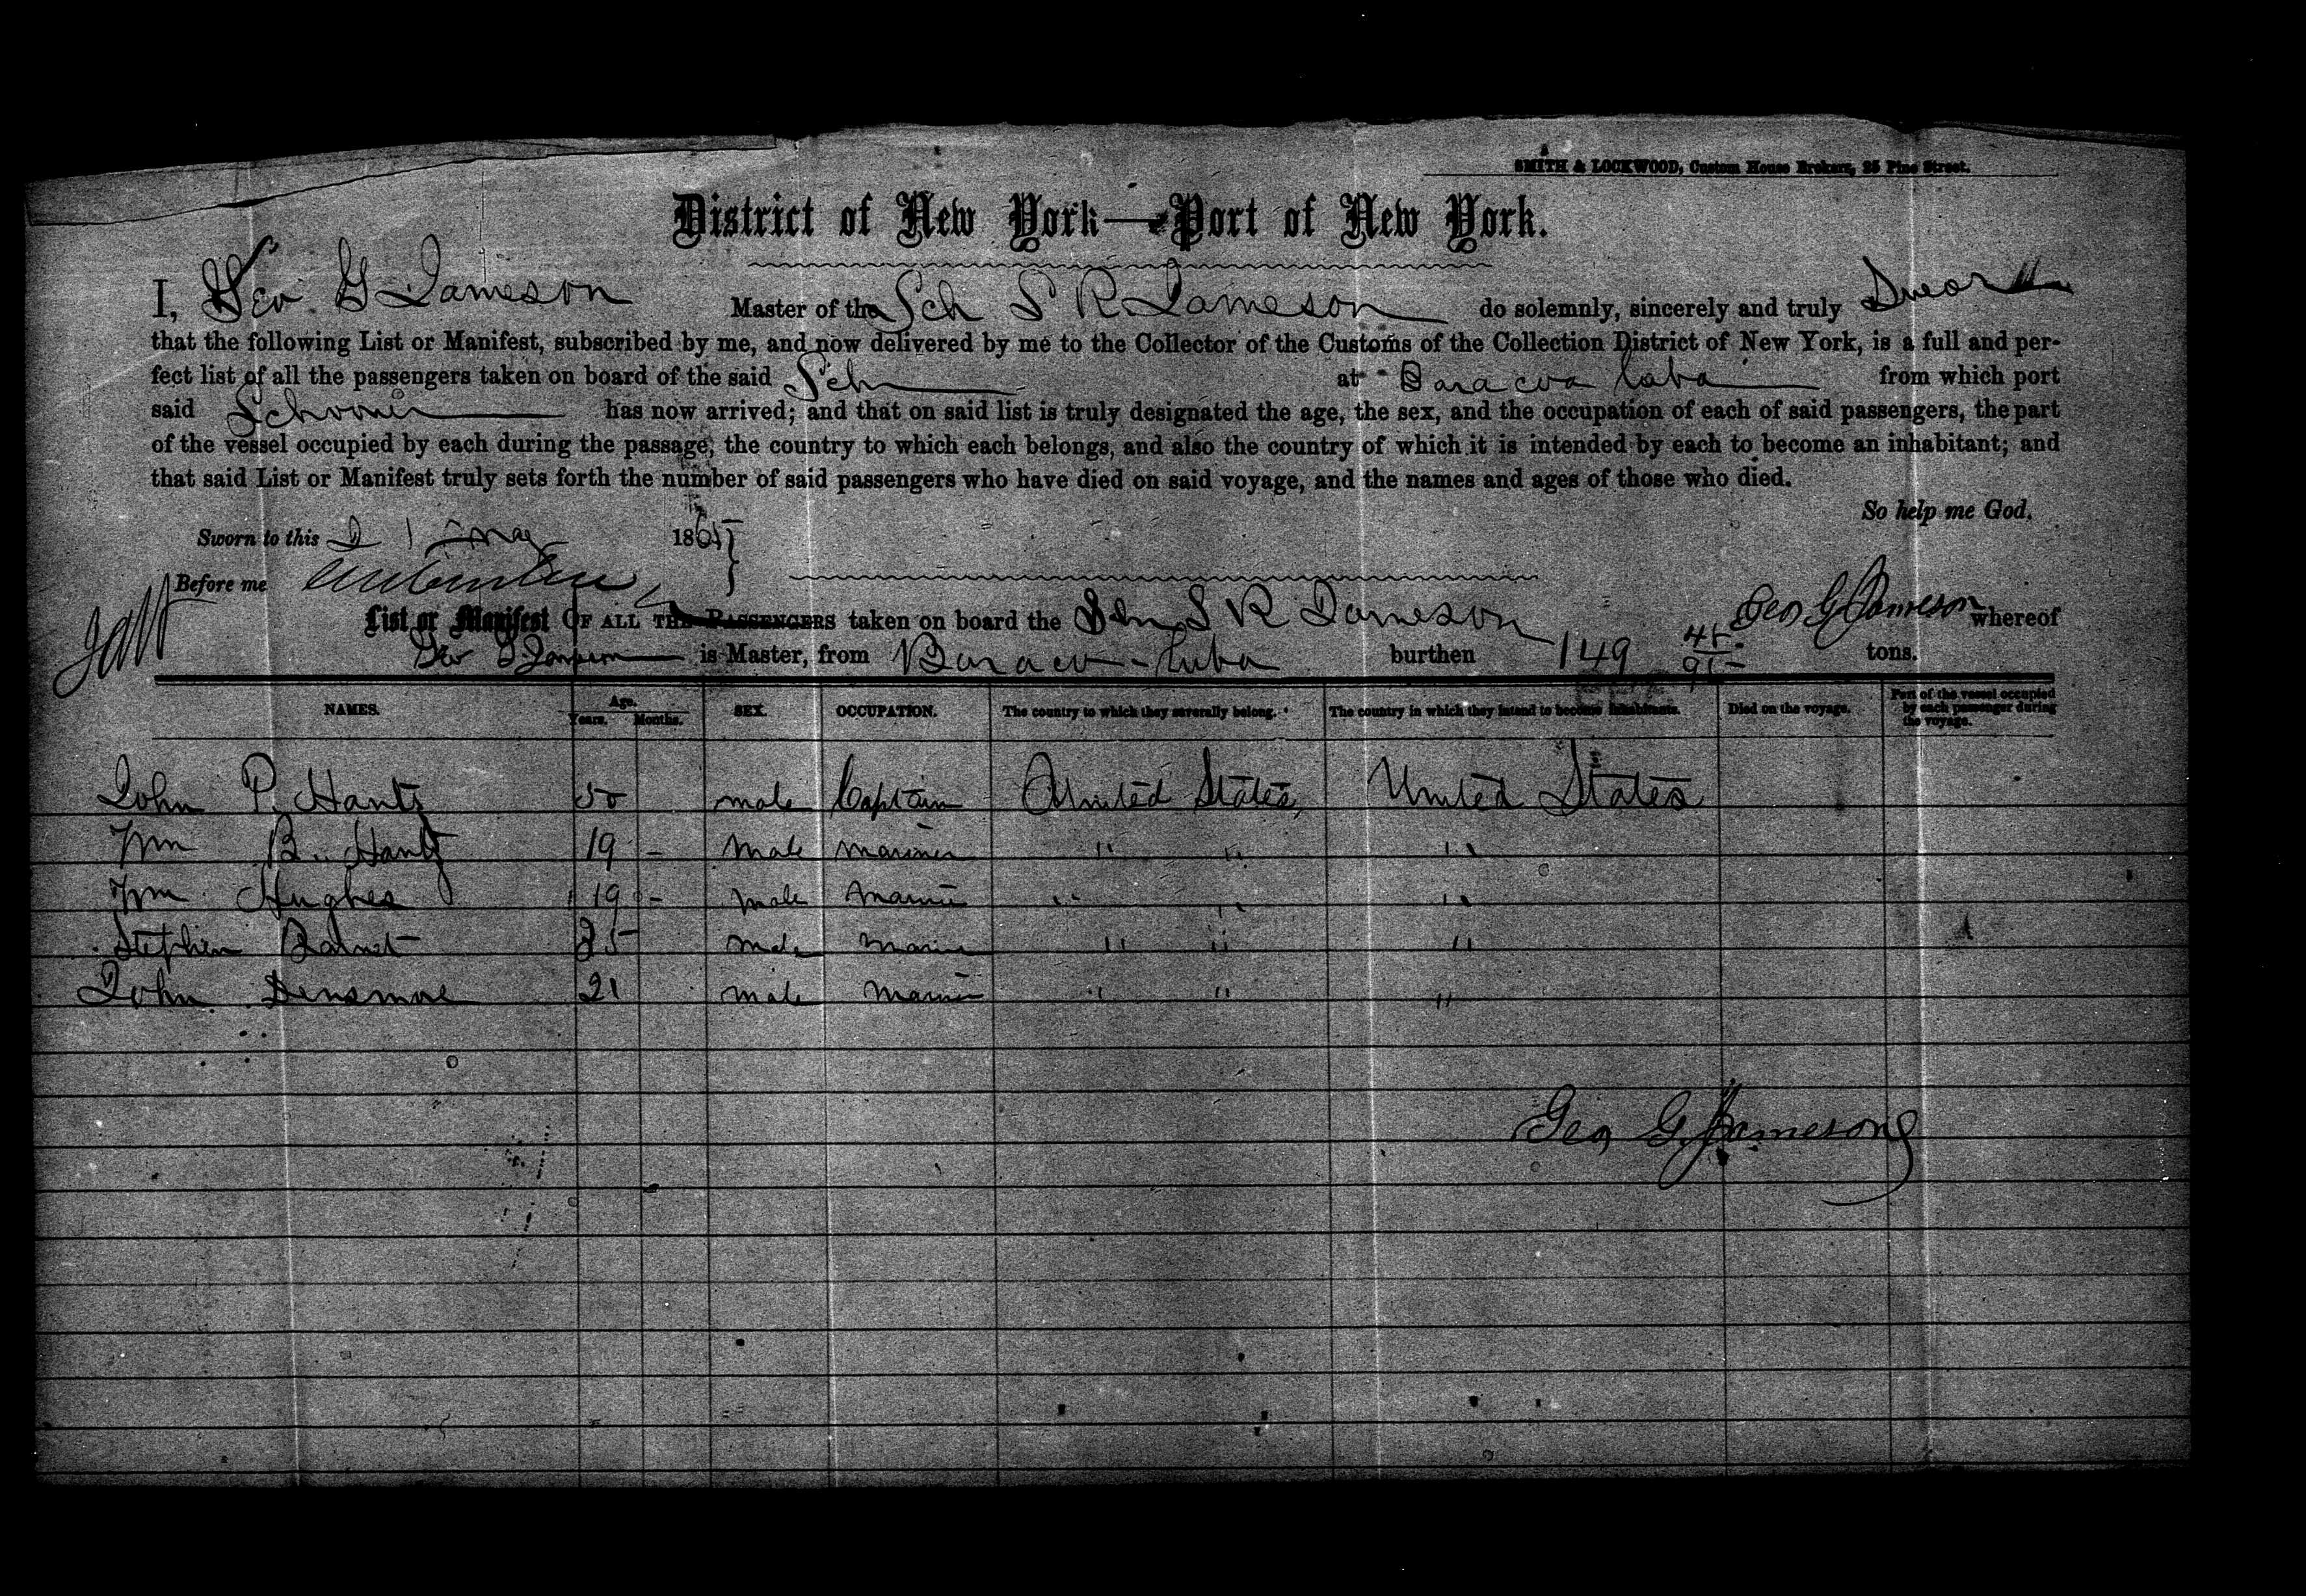 SMITH & LOCKWOOD, Custom House Brokers, 25 Pine Street.
District of New York—Port of New York.
I, Geo G Jameson Master of the Sch S R Jameson do solemnly, sincerely and truly Swear
that the following List or Manifest, subscribed by me, and now delivered by me to the Collector of the Customs of the Collection District of New York, is a full and per-
fect list of all the passengers taken on board of the said Schr at Baracoa Cuba from which port
said Schooner has now arrived; and that on said list is truly designated the age, the sex, and the occupation of each of said passengers, the part
of the vessel occupied by each during the passage, the country to which each belongs, and also the country of which it is intended by each to become an inhabitant; and
that said List or Manifest truly sets forth the number of said passengers who have died on said voyage, and the names and ages of those who died.
So help me God.
Sworn to this 21 May 1865
Before me
Geo G Jameson
List or Manifest OF ALL THE PASSENGERS taken on board the Schr S R Jameson whereof
Geo G Jameson is Master, from Baracoa - Cuba burthen 149 45/95 tons.
NAMES. Age. Years. Months. SEX. OCCUPATION. The country to which they severally belong. The country in which they intend to become inhabitants. Died on the voyage. Part of the vessel occupied by each passenger during the voyage.
John P. Hantz 50 male Captain United States United States
Wm B. Hantz 19 - male mariner " " "
Wm Hughes 19 - male marine " " "
Stephen Barnet 25 male marine " " "
John Densmore 21 male marine " " "
Geo G Jameson